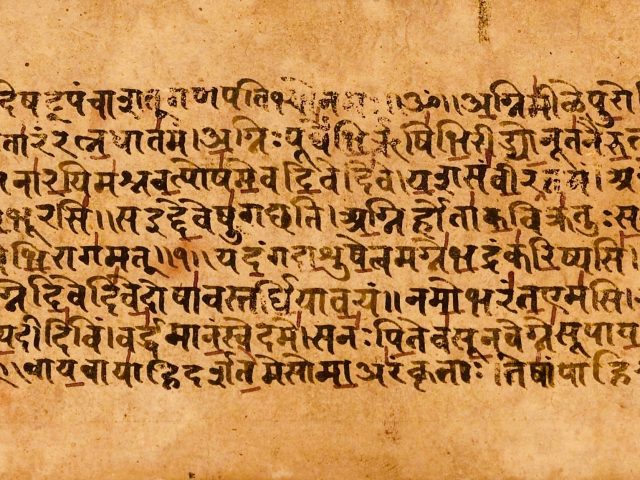 गणपति ॥ॐ॥अग्निमीळेपुरो
तारंरत्नधातमं।अग्निःपूर्वेभिर्ऋषिभिरीड्योनूतनैरुत
नारयिमश्नवत्पोषमेवदिवेदिवे।यशसंवीरवत्तमं।अ
भूरसि॥सइद्देवेषुगछति।अग्निर्होताकविक्रतुःस
भिरागमत्॥१॥यदंगदाशुषेत्वमग्नेभद्रंकरिष्यसि।
ग्नेदिवेदिवेदोषावस्तर्धियावयं॥नमोभरंतएमसि।
दीदिविं।वर्द्धमानंस्वेदमे।सनःपितेवसूनवेग्नेसूपाय
वायवायाहिदर्शतेमेसोमाअरंकृताः।तेषांपाहि